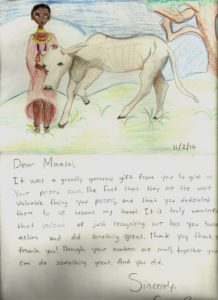 11/2/15
Dear Maasai,
It was a greatly generous gift from you to give us
Your prized cows. The fact that they are the most
valuable thing you possess, and that you dedicated
them to us warms my heart. It is truly
that instead of just recognizing our loss you took
action and did something great. Thank you, thank you,
thank you! Though your numbers are small, together you
can do something great. And you did.
Sincerely,